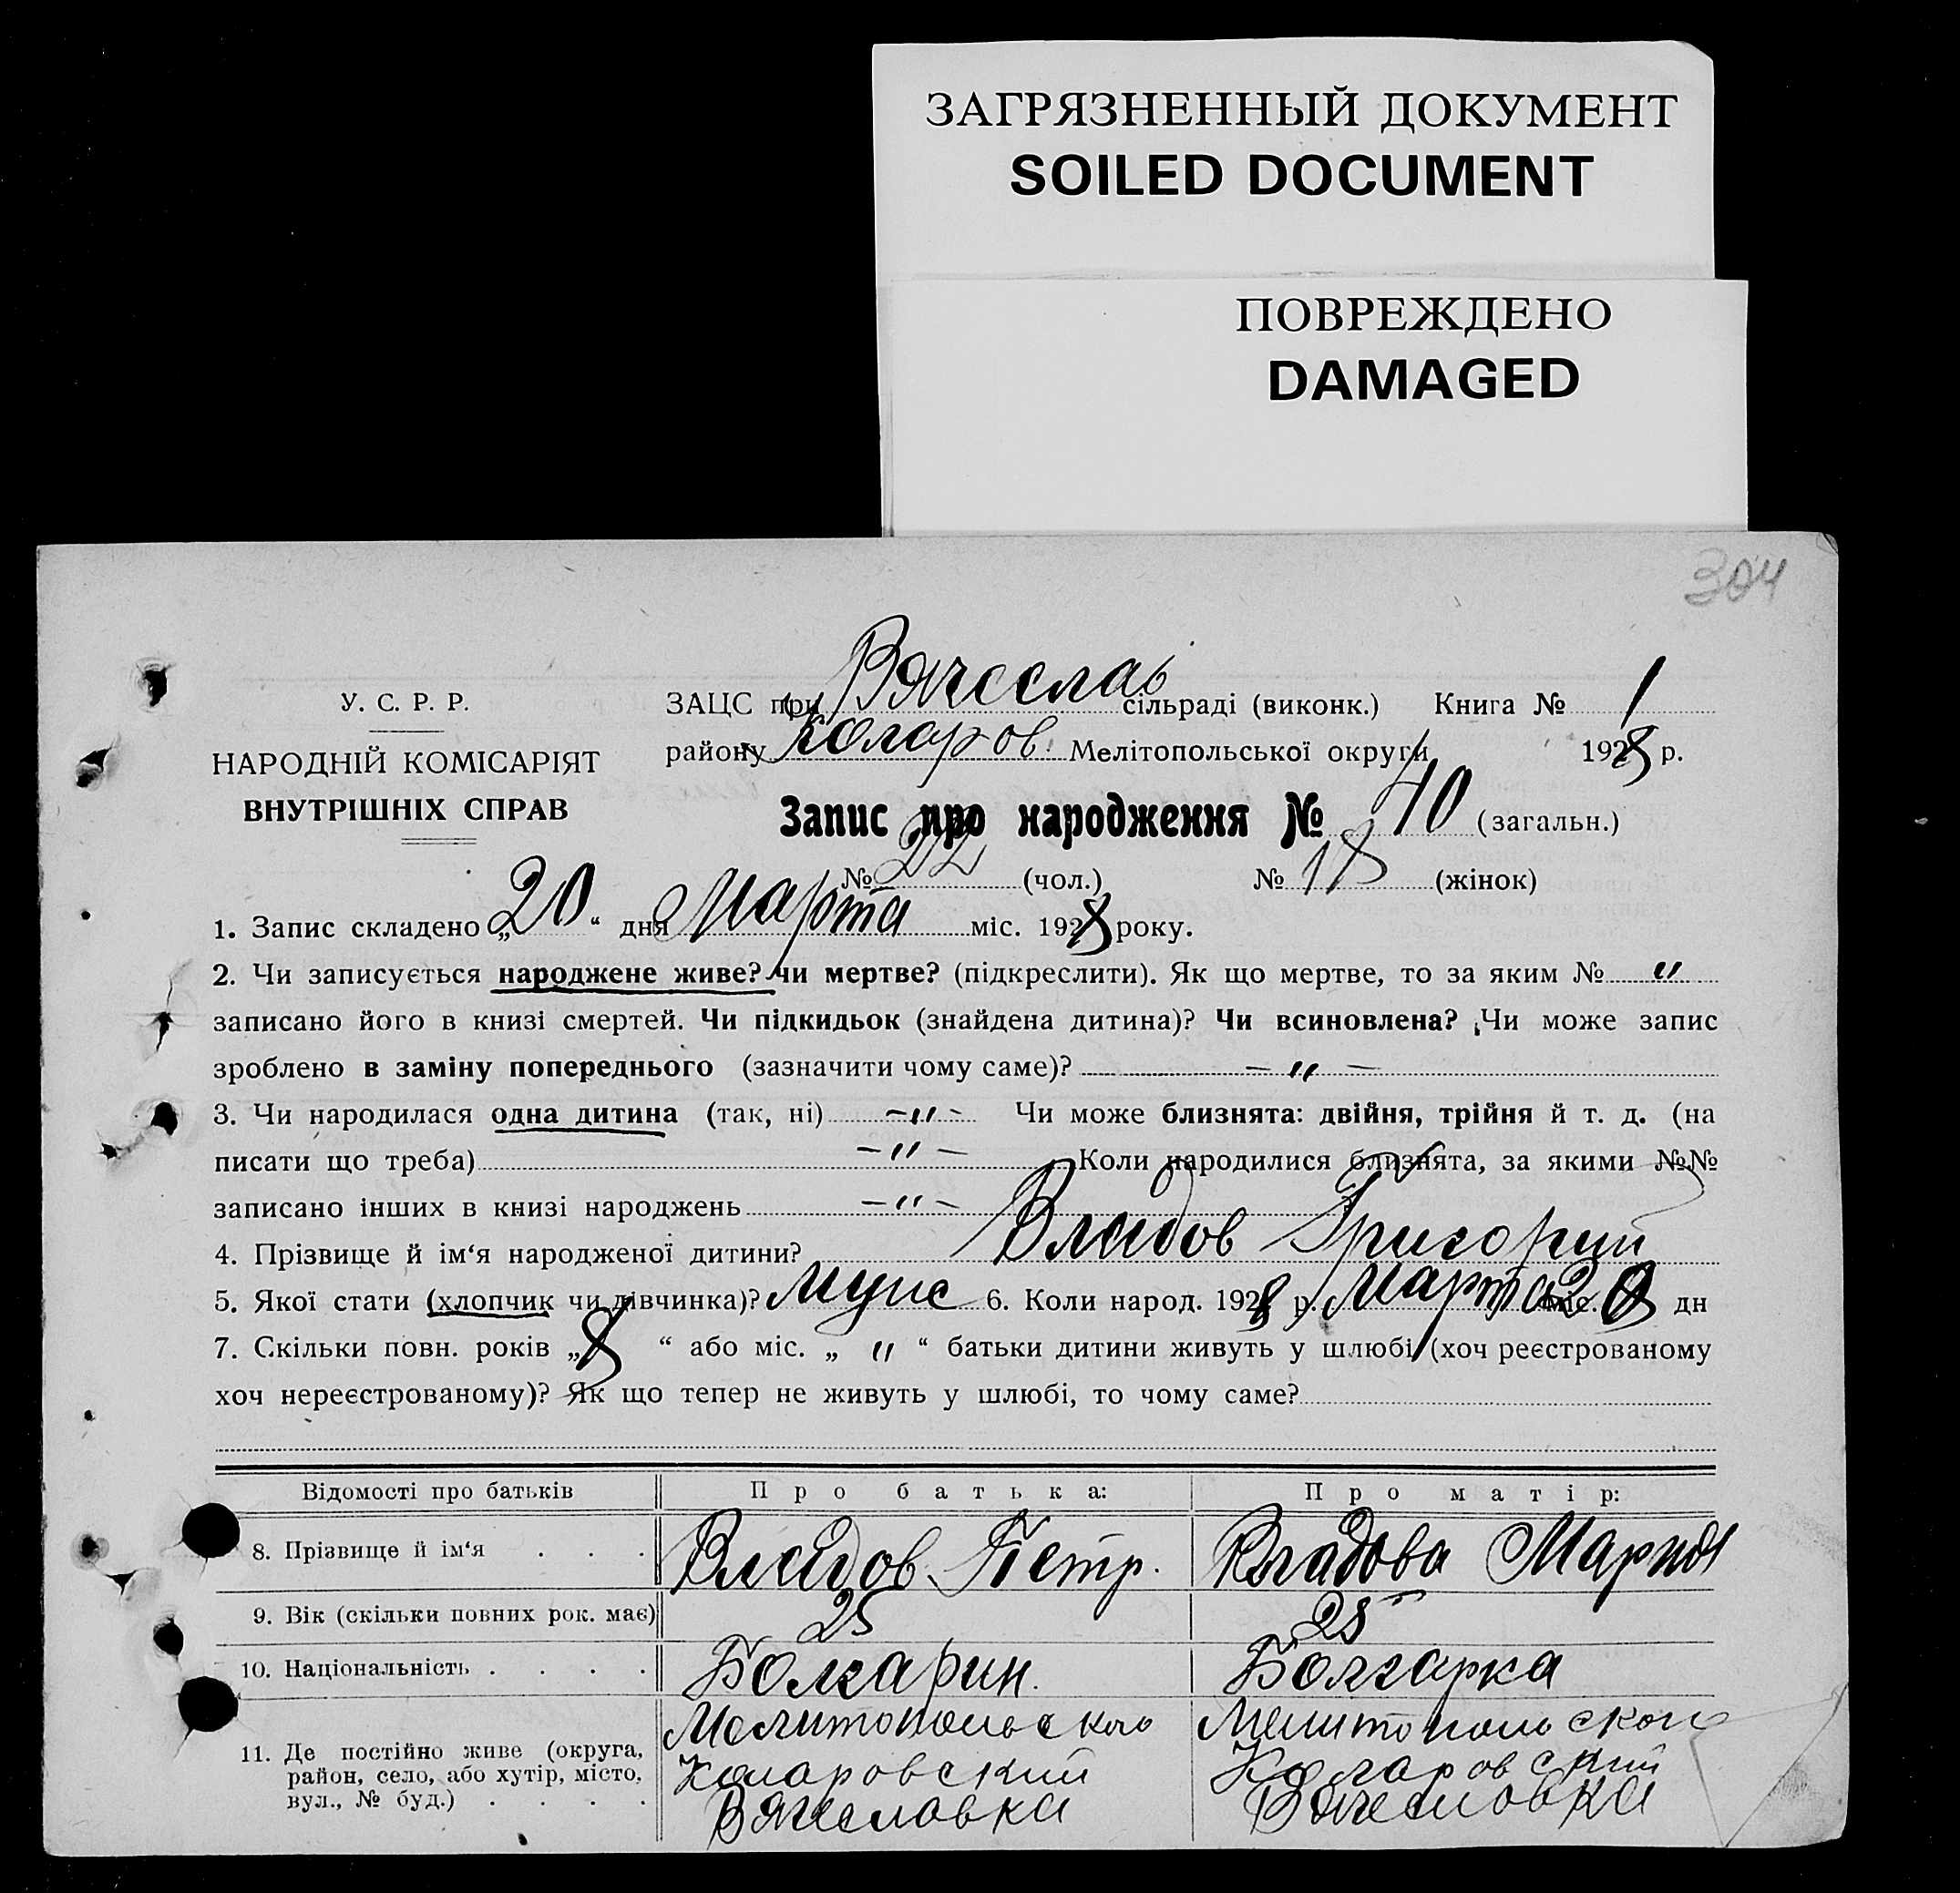 ЗАГРЯЗНЕННЫЙ ДОКУМЕНТ
SOILED DOCUMENT
ПОВРЕЖДЕНО
DAMAGED
304
У. С. Р. Р.
НАРОДНІЙ КОМІСАРІЯТ
ВНУТРІШНІХ СПРАВ
ЗАЦС при Вячеслав сільраді (виконк.) Книга № 1
району Коларов. Мелітопольської округи 1928 р.
Запис про народження № 40 (загальн.)
№ 22 (чол.) № 18 (жінок)
1. Запис складено „20“ дня Марта міс. 1928 року.
2. Чи записується народжене живе? чи мертве? (підкреслити). Як що мертве, то за яким № "
записано його в книзі смертей. Чи підкидьок (знайдена дитина)? Чи всиновлена? Чи може запис
зроблено в заміну попереднього (зазначити чому саме)? — " —
3. Чи народилася одна дитина (так, ні) — " — Чи може близнята: двійня, трійня й т. д. (на
писати що треба) — " — Коли народилися близнята, за якими №№
записано інших в книзі народжень — " —
4. Прізвище й ім‘я народженої дитини? Владов Григорий
5. Якої стати (хлопчик чи дівчинка)? Мужс 6. Коли народ. 1928 р. Марта міс. дн
7. Скільки повн. років „8“ або міс. „ " “ батьки дитини живуть у шлюбі (хоч реєстрованому
хоч нереєстрованому)? Як що тепер не живуть у шлюбі, то чому саме?
Відомості про батьків Про батька: Про матір:
8. Прізвище й ім‘я . . . Владов Петр. Владова Мария
9. Вік (скільки повних рок. має) 25 25
10. Національність . . . . Болгарин. Болгарка
11. Де постійно живе (округа, Мелитопольского Мелитопольского
район, село, або хутір, місто, Коларовский Коларовский
вул., № буд.) . . . . Вячеславка Вячеславка